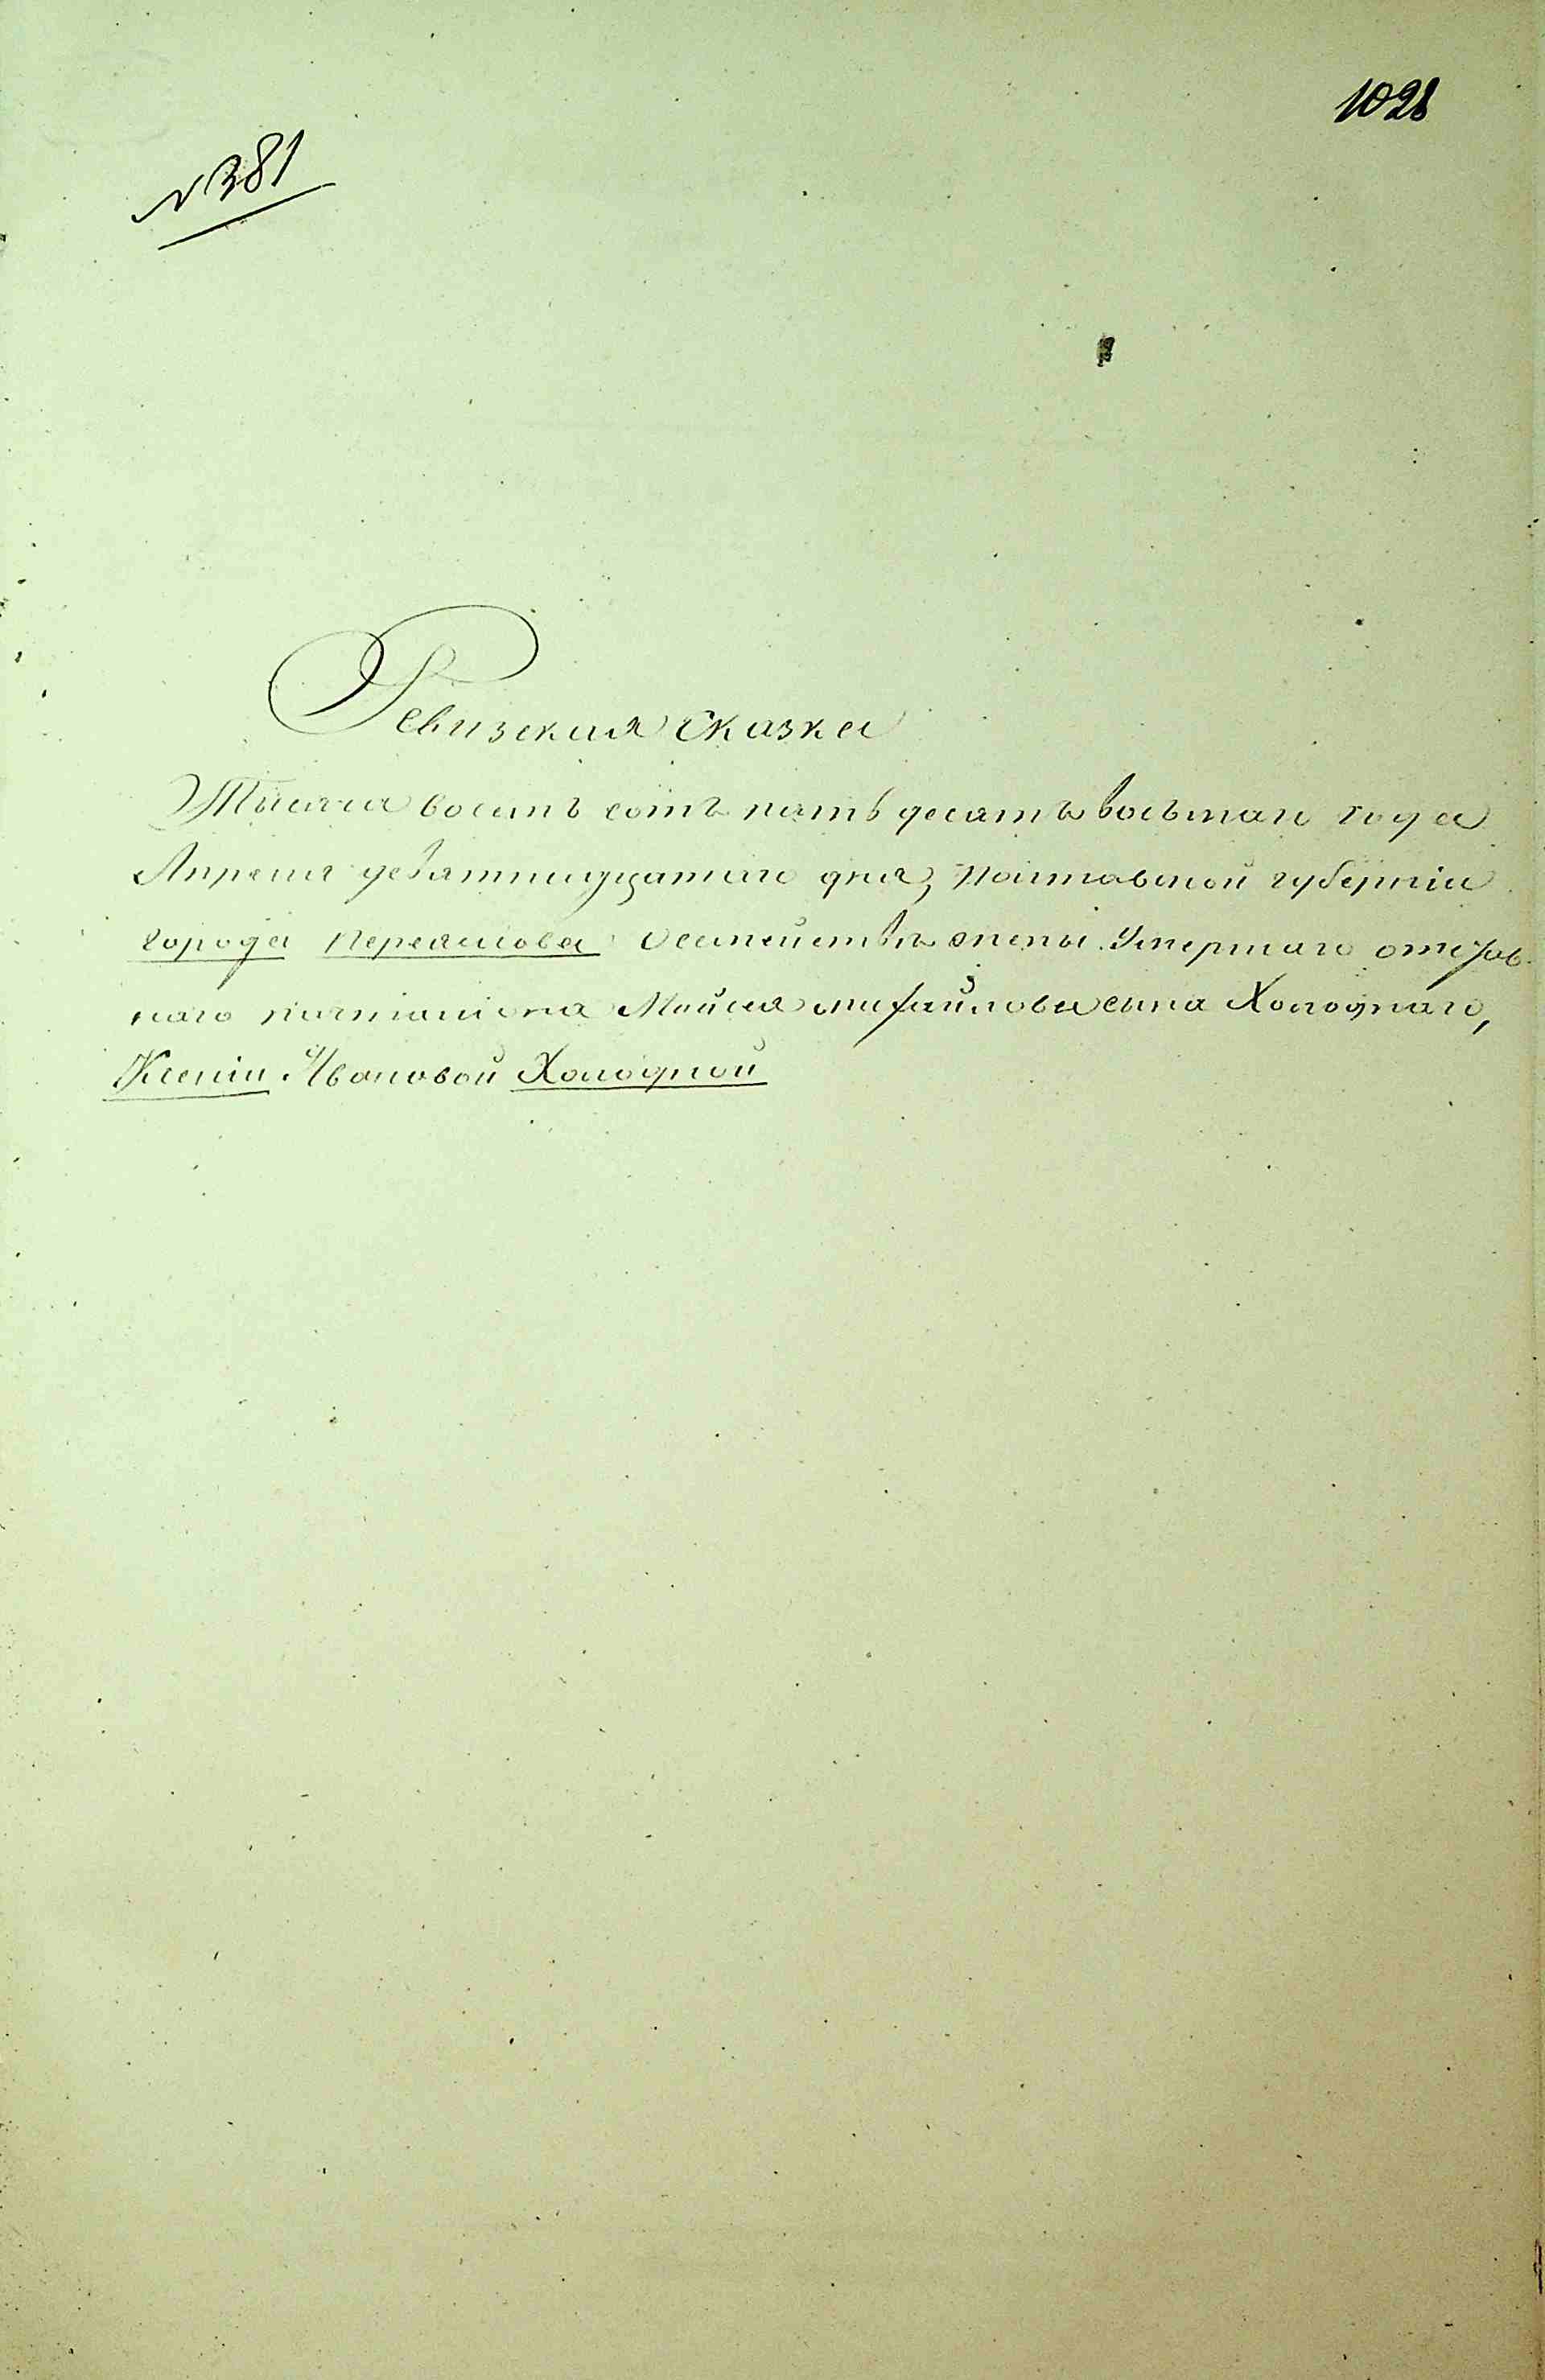 1028
№ 381
Ревизская сказка
Тысяча восемь сотъ пять десятъ восьмаго года
Апреля девятнадцатаго дня, Полтавской губернiи
города Переяслова О семействѣ жены Умершаго отстав-
наго Моисея Михайлова сына Холоднаго,
Ксенiи Ивановой Холодной